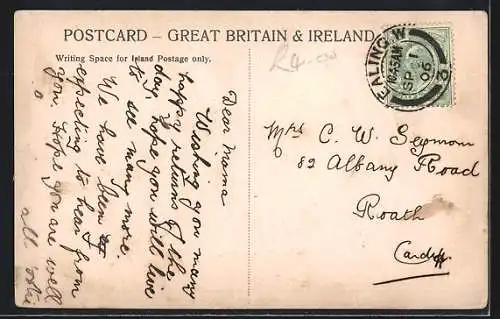 POSTCARD – GREAT BRITAIN & IRELAND
Writing Space for Inland Postage only.
£4.00
EALING. W
10.45 AM
SP
06
Dear Mama
Wishing you many
happy returns of the
day, hope you will live
to see many more.
We have been
expecting to hear from
you, hope you are well
Mrs C. W. Seymour
82 Albany Road
Roath
Cardiff